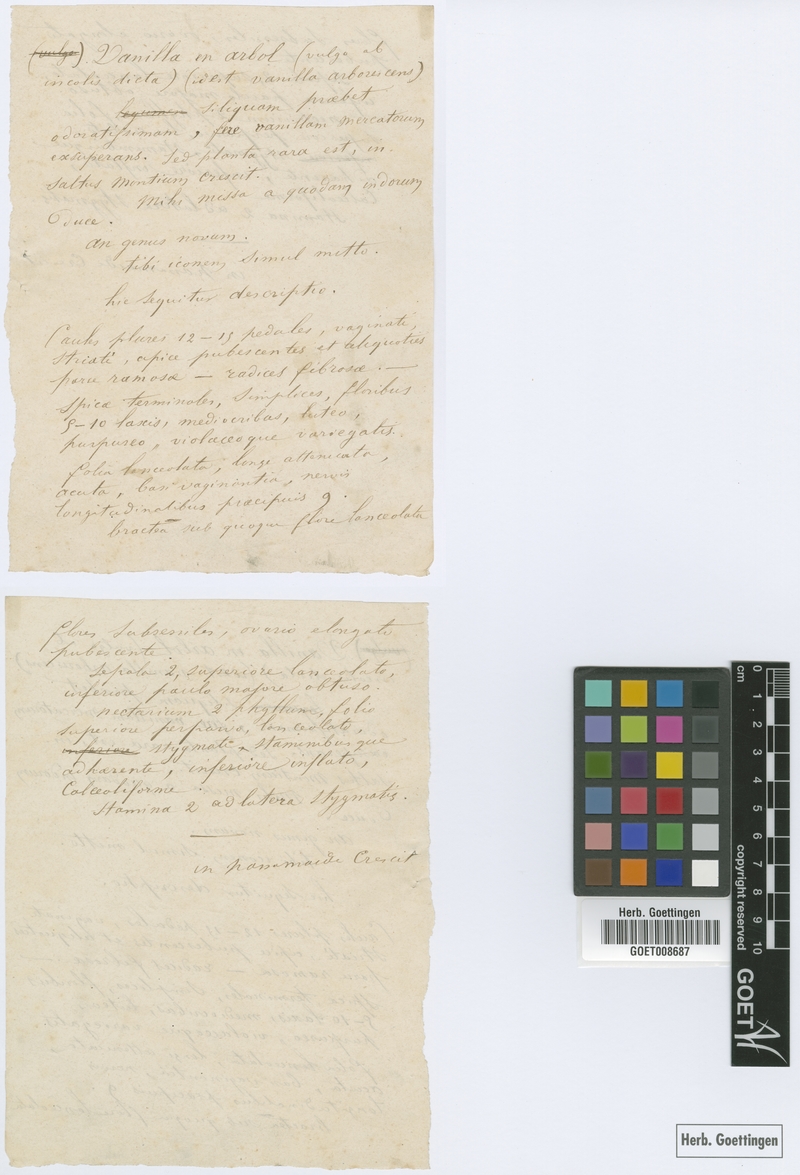 (vulgo). Vanilla en arbol (vulgo ab
incolis dicta) (id est vanilla arborescens)
legumen siliquam præbet
odoratissimam, fere vanillam mercatorum
exsuperans. Sed planta rara est, in
saltus montium crescit.
mihi missa a quodam indorum
duce.
an genus novum.
tibi iconem simul mitto.
hic sequitur descriptio.
Caules plures 12-15 pedales, vaginati,
striati, apice pubescentes et aliquoties
parce ramosæ — radices fibrosæ. —
Spicæ terminales, simplices, floribus
5-10 laxis, mediocribus, luteo,
purpureo, violaceoque variegatis.
folia lanceolata, longe attenuata,
acuta, basi vaginantia, nervis
longitudinalibus præcipuis 9.
bractea sub quoque flore lanceolata
flores subsessiles, ovario elongato
pubescente.
Sepala 2, superiore lanceolato,
inferiore paulo majore obtuso.
nectarium 2 phyllum, folio
superiore perparvo, lanceolato,
inferiore stygmate, staminibusque
adhærente, inferiore inflato,
Calceoliforme.
Stamina 2 ad latera stygmatis.
in Crescit
cm
0 1 2 3 4 5 6 7 8 9 10
copyright reserved
GOET
Herb. Goettingen
GOET008687
Herb. Goettingen